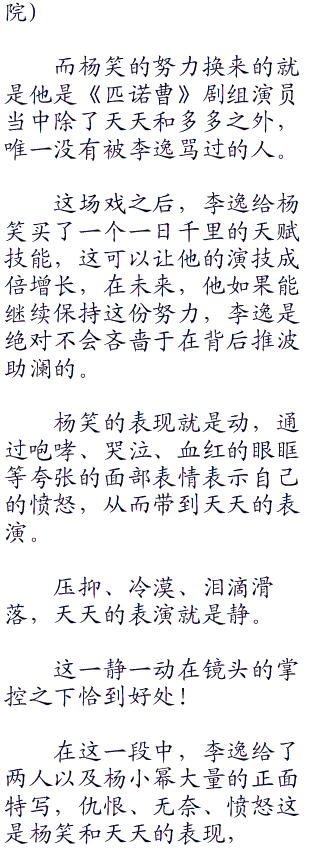 院）
而杨笑的努力换来的就
是他是《匹诺曹》剧组演员
当中除了天天和多多之外，
唯一没有被李逸骂过的人。
这场戏之后，李逸给杨
笑买了一个一日千里的天赋
技能，这可以让他的演技成
倍增长，在未来，他如果能
继续保持这份努力，李逸是
绝对不会吝啬于在背后推波
助澜的。
杨笑的表现就是动，通
过咆哮、哭泣、血红的眼眶
等夸张的面部表情表示自己
的愤怒，从而带到天天的表
演。
压抑、冷漠、泪滴滑
落，天天的表演就是静。
这一静一动在镜头的掌
控之下恰到好处！
在这一段中，李逸给了
两人以及杨小幂大量的正面
特写，仇恨、无奈、愤怒这
是杨笑和天天的表现，